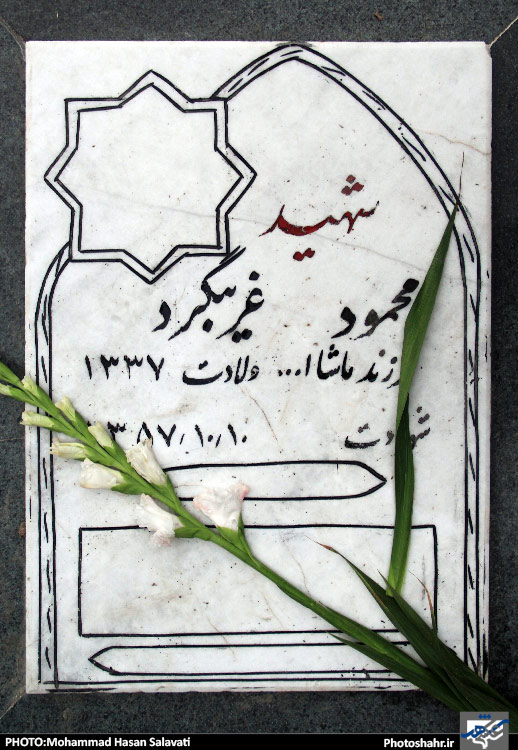 شهید
محمود غریبگرد
فرزند ماشاا... ولادت ۱۳۳۷
شهادت ۱۳۸۷/۱۰/۱۰
PHOTO:Mohammad Hasan Salavati
Photoshahr.ir